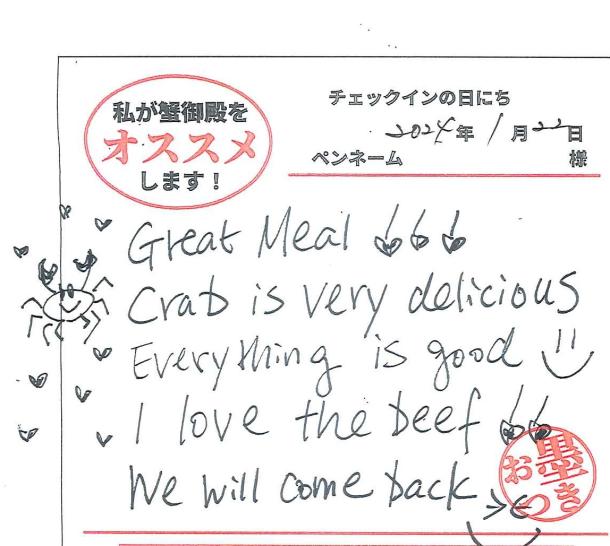 私が蟹御殿を
オススメ
します！
チェックインの日にち
2024年 1月22日
ペンネーム 様
Great Meal
Crab is very delicious
Everything is good
I love the beef
We will come back
お墨
つき